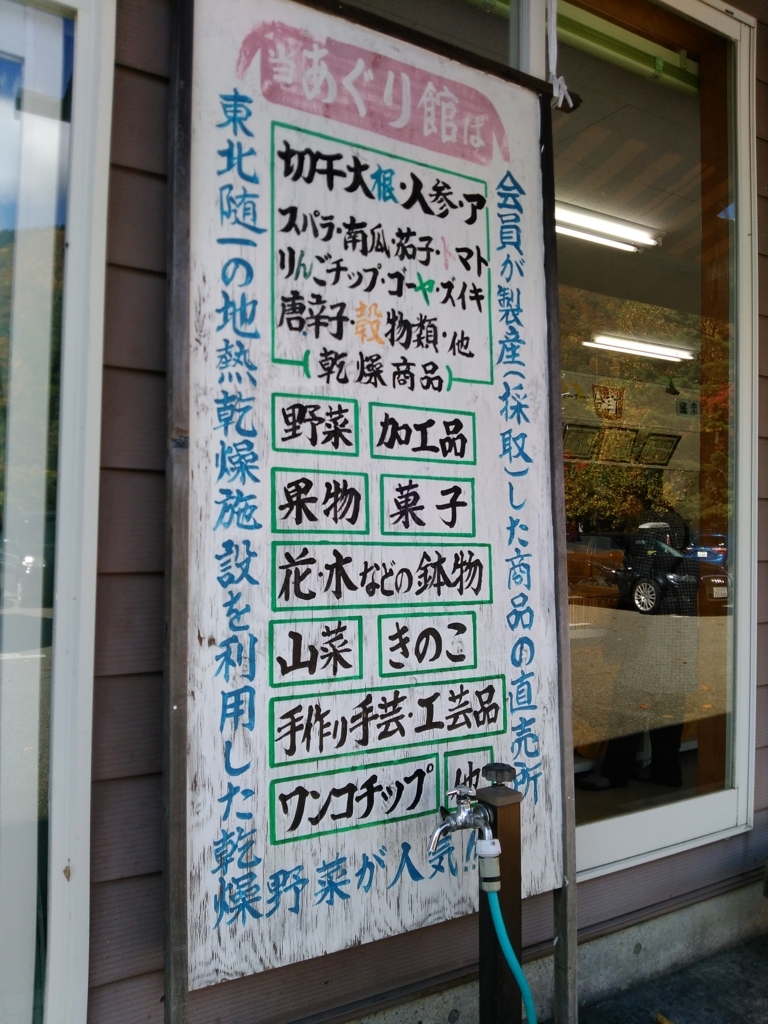 当あぐり館は
会員が製産(採取)した商品の直売所
切干大根・人参・ア
スパラ・南瓜・茄子・トマト
りんごチップ・ゴーヤ・ズイキ
唐辛子・穀物類・他
(乾燥商品)
野菜 加工品
果物 菓子
花・木などの鉢物
山菜 きのこ
手作り手芸・工芸品
ワンコチップ 他
東北随一の地熱乾燥施設を利用した乾燥野菜が人気!!